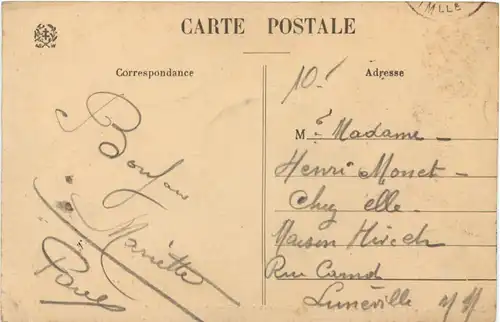 MLLE
CARTE POSTALE
Correspondance
Adresse
10.
Bonjour
Mariette
Paul
M Madame
Henri Monet
Chez elle
Maison Hirsch
Rue Carnot
Lunéville